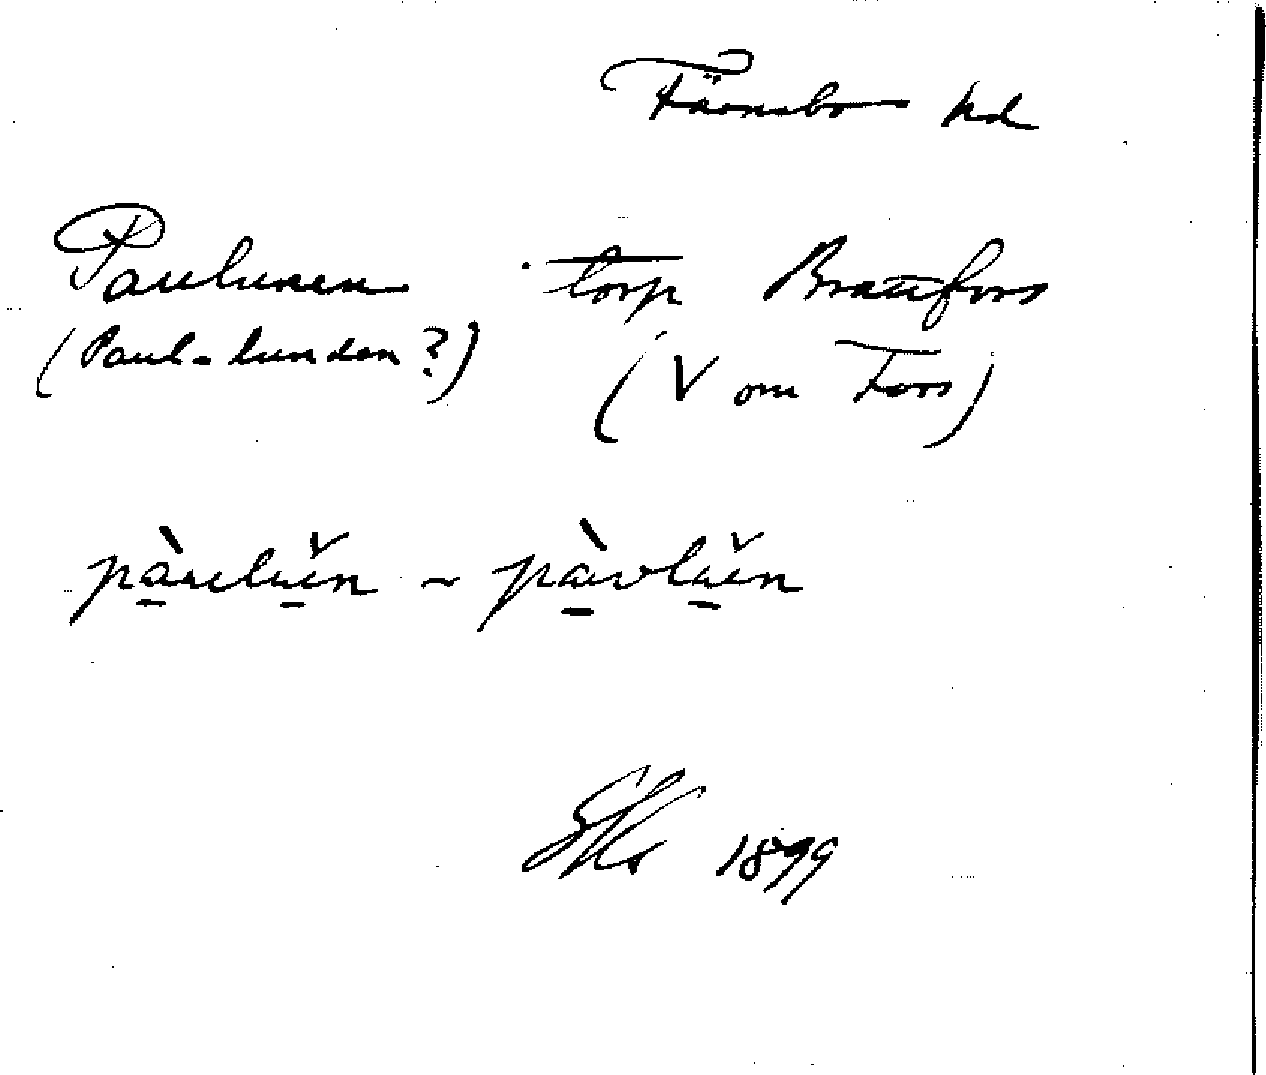 Färnebo hd
Paulunen torp Brattfors
(Paul-lunden?) (V om Fors)
pàulŭn ~ pàvlŭn
1899